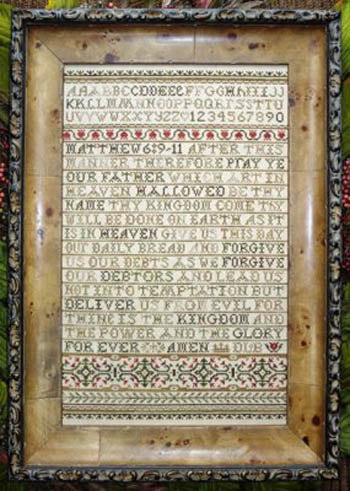 AAABBCCDDEEFFFGGHHIIJJ
KKLLMMNNOOPPQQRRSSTTU
UVVWWXXYYZZ♡1234567890
MATTHEW 6:9-11 AFTER THIS
MANNER THEREFORE PRAY YE
OUR FATHER WHICH ART IN
HEAVEN HALLOWED BE THY
NAME THY KINGDOM COME THY
WILL BE DONE ON EARTH AS IT
IS IN HEAVEN GIVE US THIS DAY
OUR DAILY BREAD AND FORGIVE
US OUR DEBTS AS WE FORGIVE
OUR DEBTORS AND LEAD US
NOT INTO TEMPTATION BUT
DELIVER US FROM EVIL FOR
THINE IS THE KINGDOM AND
THE POWER AND THE GLORY
FOR EVER AMEN